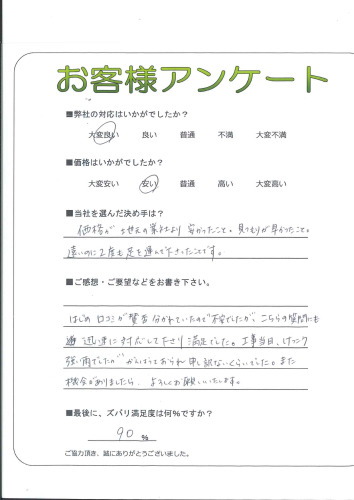 お客様アンケート
■弊社の対応はいかがでしたか?
大変良い 良い 普通 不満 大変不満
■価格はいかがでしたか?
大変安い 安い 普通 高い 大変高い
■当社を選んだ決め手は?
価格が他の業者より安かったこと。見つもりが早かったこと。
遠いのに2度も足を運んで下さったことです。
■ご感想・ご要望などをお書き下さい。
はじめ口コミが賛否分かれていたので不安でしたが、こちらの質問にも
迅速に対応して下さり満足でした。工事当日、けっこう
強い雨でしたががんばっておられ申し訳ないくらいでした。また
機会がありましたら、よろしくお願いいたします。
■最後に、ズバリ満足度は何%ですか?
90 %
ご協力頂き、誠にありがとうございました。